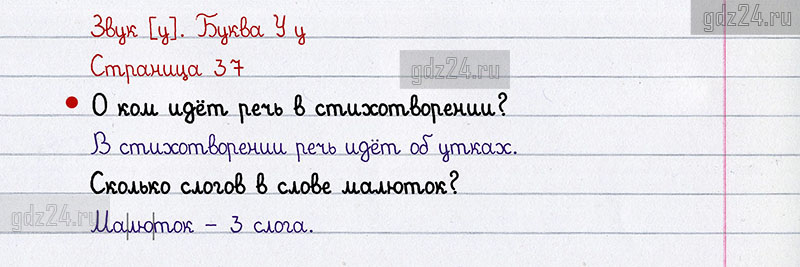 Звук [у]. Буква У у
Страница 37
О ком идёт речь в стихотворении?
В стихотворении речь идёт об утках.
Сколько слогов в слове малюток?
Ма|лю|ток – 3 слога.
gdz24.ru
gdz24.ru
gdz24.ru